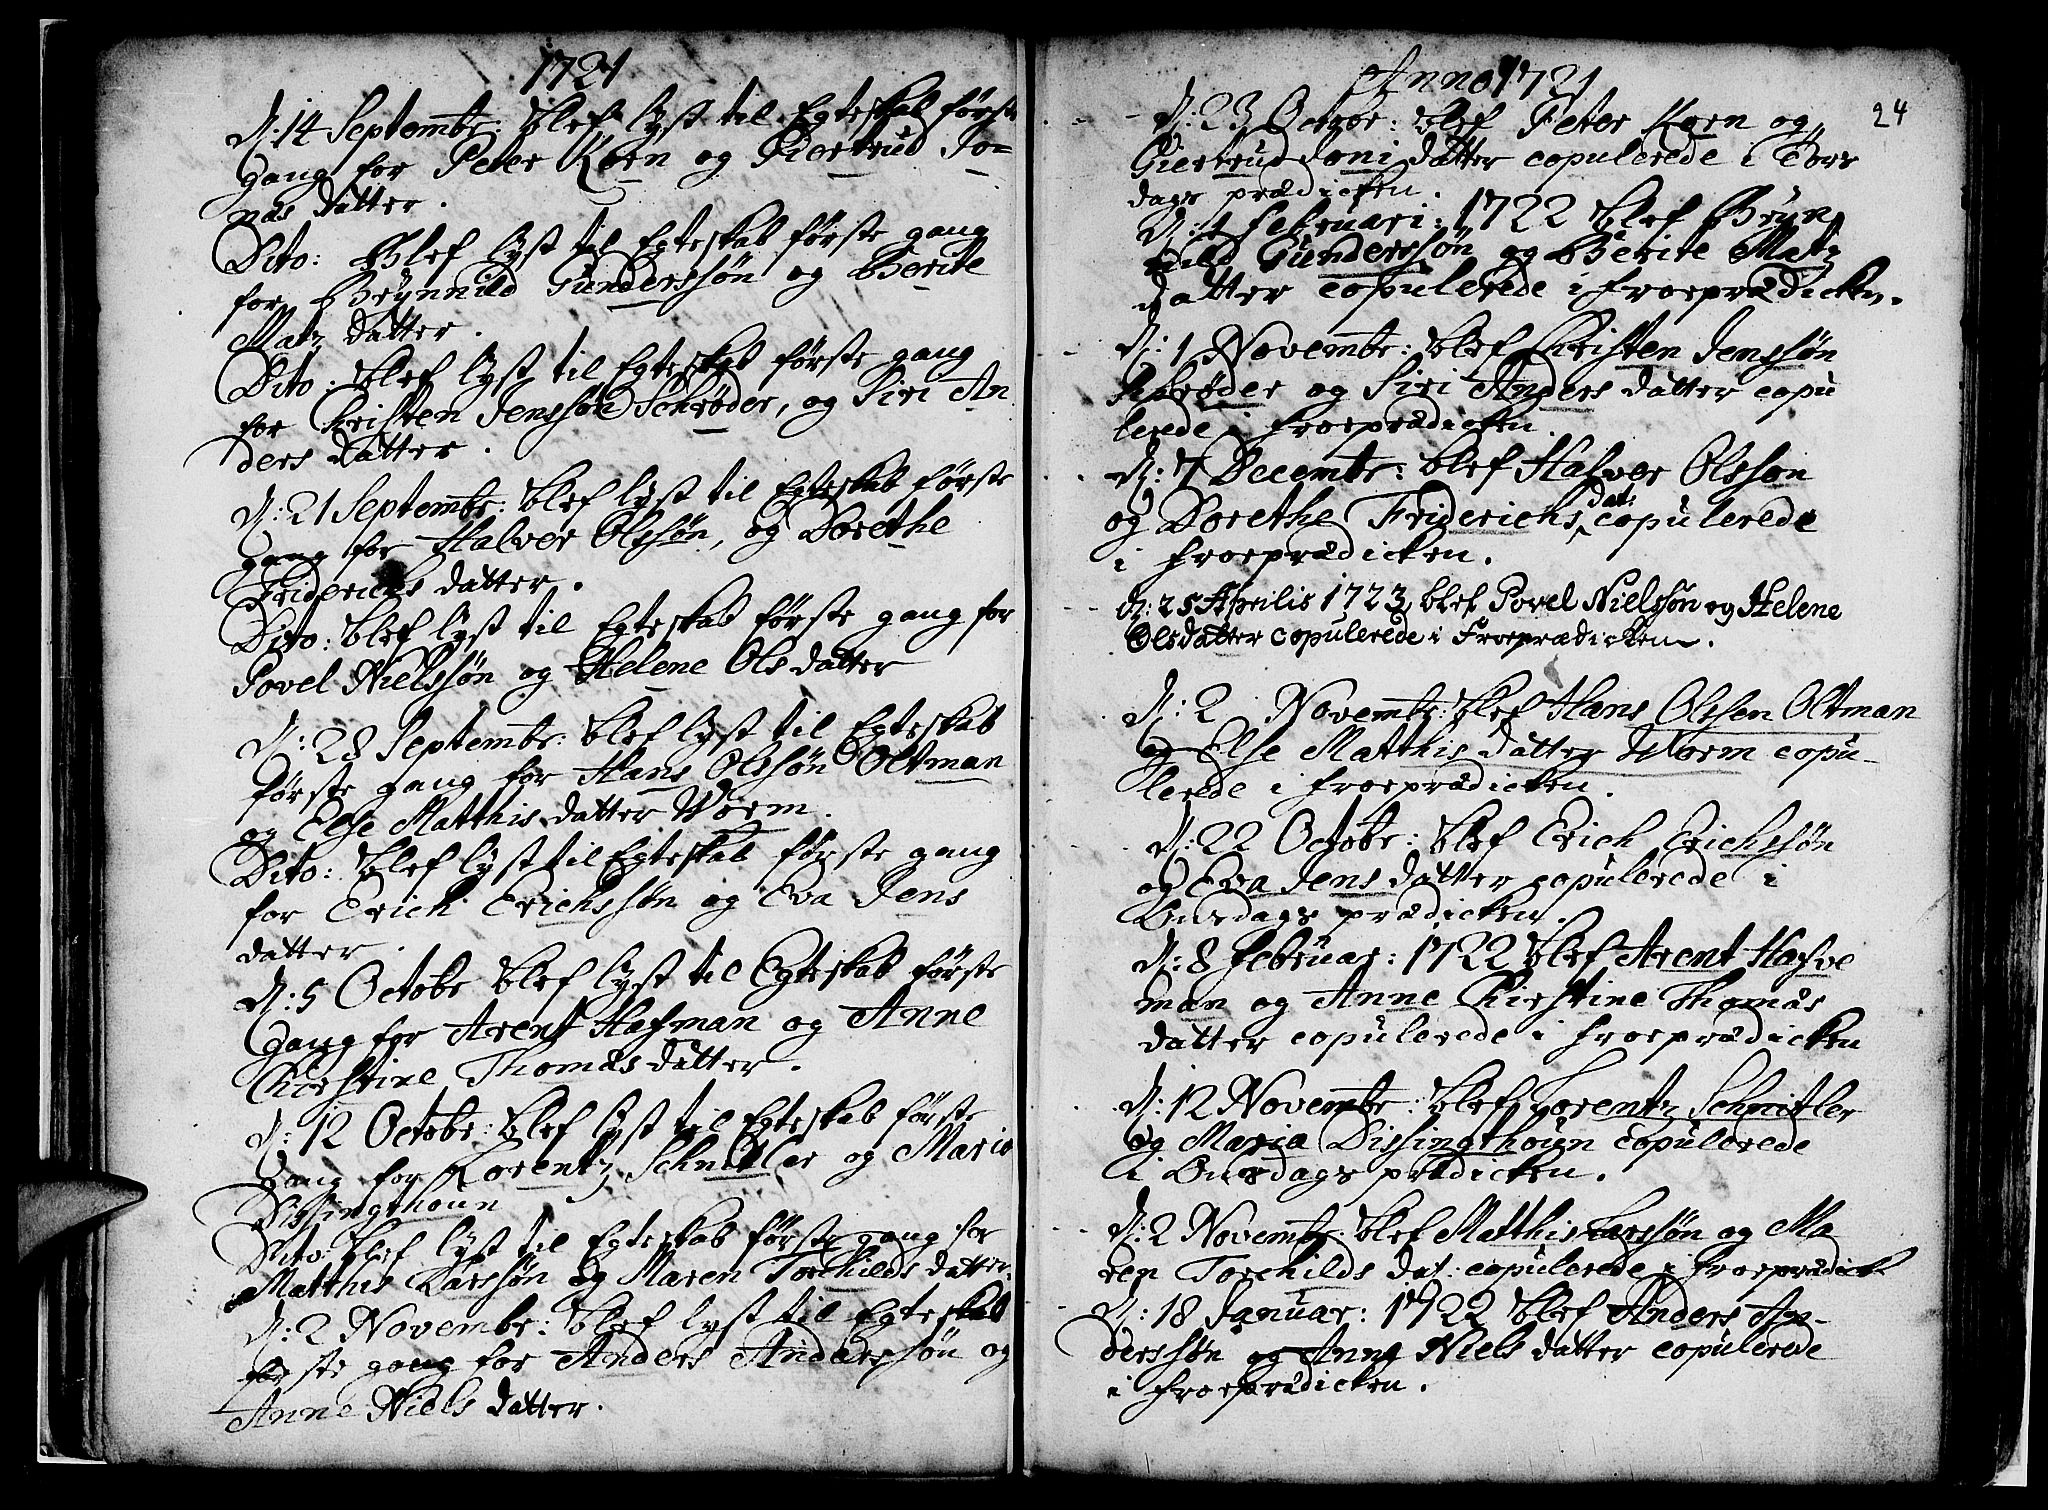 1721
D: 14 Septembr: blef lyst til Egteskab første
gang for Peter Korn og Giertrud Jo=
nas datter.
Dito: Blef lyst til Egteskab første gang
for Brynnild Gunderssøn og Berite
Matz datter.
Dito: blef lyst til Egteskab første gang
for Kristen Jenssøn Schrøder, og Siri An
ders datter.
D: 21 Septembr: blef lyst til Egteskab første
gang for Halver Olssøn, og Dorethe
Friderichs datter.
Dito: blef lyst til Egteskab første gang for
Povel Nielssøn og Helene Ols datter
D: 28 Septembr: blef lyst til Egteskab
første gang for Hans Olssøn Oltman
og Else Matthis datter Worm.
Dito: blef lyst til Egteskab første gang
for Erich Erichssøn og Eva Jens
datter.
D: 5 Octobr blef lyst til Egteskab første
gang for Arent Hafman og Anne
Kirstine Thomas datter.
D: 12 Octobr: blef lyst til Egteskab første
gang for Lorentz Schnitler og Maria
Dissingthoun
Dito blef lyst til Egteskab første gang for
Matthis Larssøn og Maren Torchilds datter.
D: 2 Novembr: blef lyst til Egteskab
første gang for Anders Anderssøn og
Anne Niels datter.
Anno 1721
24
D: 23 Octobr: blef Peter Korn og
Giertrud Joni datter copulerede i Tors
dags prædicken.
D: 1 Februari: 1722 blef Bryn
nild Gunderssøn og Berite Matz
datter copulerede i froeprædicken.
D: 1 Novembr: blef Kristen Jenssøn
Schrøder og Siri Anders datter copu
lerede i froeprædicken.
D: 7 Decembr: blef Halver Olsson
og Dorethe Friderichs dat: copulerede
i froeprædicken.
D: 25 Aprilis 1723 blef Povel Nielssøn og Helene
Olsdatter copulerede i Froeprædicken.
D: 2 Novembr: blef Hans Olssen Oltman
og Else Matthis datter Worm copu-
lerede i froeprædicken.
D: 22 Octobr: blef Erich Erichssøn
og Eva Jens datter copulerede i
Onsdags prædicken.
D: 8 Februar: 1722 blef Arent Hafve
man og Anne Kirstine Thomas
datter copulerede i froeprædicken
D: 12 Novembr: blef Lorentz Schnitler
og Maria Dissingthoun copulerede
i Onsdags prædicken.
D: 2 Novembr: blef Matthis Larssøn og Ma
ren Torchilds dat: copulerede i froeprædick
D: 18 Januar: 1722 blef Anders An-
derssøn og Anne Niels datter copulerede
i froeprædicken.